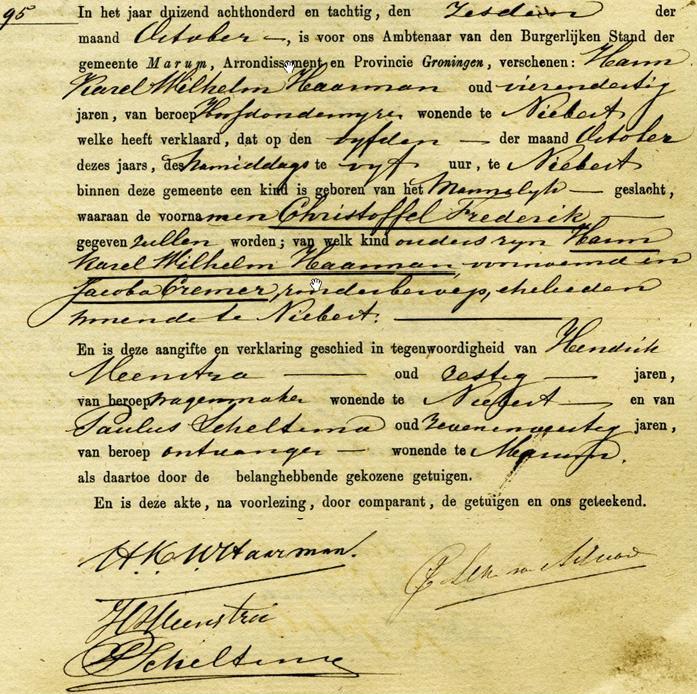 95
In het jaar duizend achthonderd en tachtig, den zesden der
maand October —, is voor ons Ambtenaar van den Burgerlijken Stand der
gemeente Marum, Arrondissement en Provincie Groningen, verschenen: Harm
Karel Wilhelm Haarman oud vierendertig
jaren, van beroep Hoofdonderwyzer wonende te Niebert
welke heeft verklaard, dat op den vyfden — der maand October
dezes jaars, des namiddags te vyf uur, te Niebert
binnen deze gemeente een kind is geboren van het Mannelyk — geslacht,
waaraan de voornamen Christoffel Frederik
gegeven zullen worden; van welk kind ouders zyn Harm
Karel Wilhelm Haarman, voornoemd en
Jacoba Cremer, zonder beroep, echelieden
wonende te Niebert. —
En is deze aangifte en verklaring geschied in tegenwoordigheid van Hendrik
Meenstra — oud zestig — jaren,
van beroep wagenmaker wonende te Niebert — en van
Paulus Scheltema oud zevenenveertig jaren,
van beroep ontvanger — wonende te Marum,
als daartoe door de belanghebbende gekozene getuigen.
En is deze akte, na voorlezing, door comparant, de getuigen en ons geteekend.
H.K.W. Haarman.
H Meenstra
P Scheltema